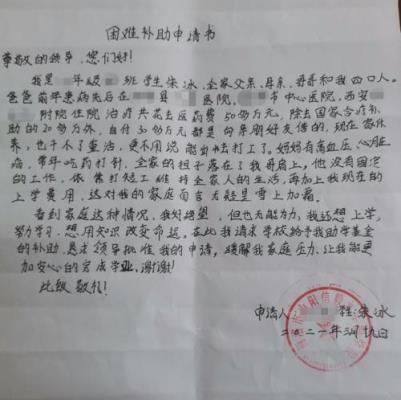 困难补助申请书
尊敬的领导,您们好!
我是 年级 班学生朱冰,全家父亲、母亲、哥哥和我四口人。
爸爸前年患病先后在 县 医院, 市中心医院,西安
附院住院治疗共花去医药费50多万元,除去国家合疗补
助的20多万外,自付30多万元都是向亲朋好友借的,现在家休
养,也干不了重活,更不用说能出去打工了。妈妈有高血压,心脏
病,常年吃药打针,全家的担子落在了我哥肩上,他没有固定
的工作,体靠打短工维持全家人的生活,再加上我现在的
上学费用,这对我的家庭而言无疑是雪上加霜。
看到家庭这种情况,我好绝望,但也无能为力,我还想上学,
努力学习,想用知识改变命运。在此我请求学校给予我助学基金
的补助,恳求领导批准我的申请,缓解我家庭压力,让我能更
加安心的完成学业,谢谢!
此致敬礼!
申请人 朱冰
二〇二一年三月 日